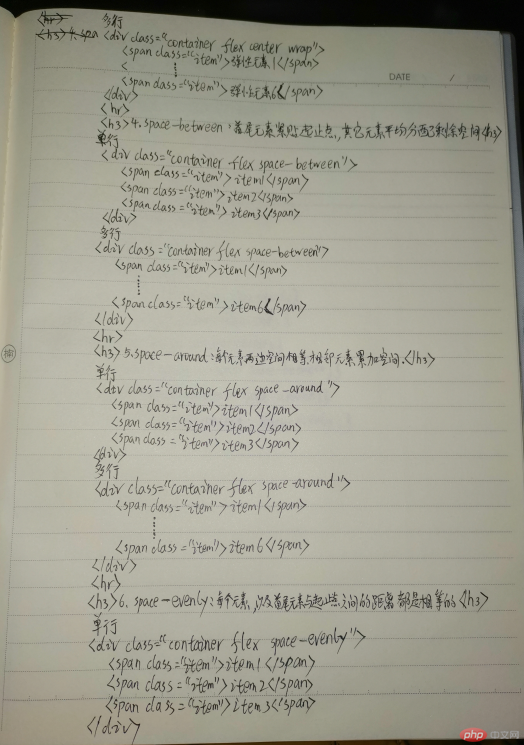 <hr> 多行
<h3>4.spa <div class="container flex center wrap">
<span class="item">弹性元素1</span>
<
<span class="item">弹性元素6</span>
DATE /
</div>
<hr>
<h3>4.space-between:首尾元素紧贴起止点,其它元素平均分配了剩余空间<h3>
单行
<div class="container flex space-between">
<span class="item">item1</span>
<span class="item">item2</span>
<span class="item">item3</span>
</div>
多行
<div class="container flex space-between">
<span class="item">item1</span>
<span class="item">item6</span>
</div>
<hr>
<h3>5.space-around:每个元素两边空间相等,相邻元素累加空间.</h3>
单行
<div class="container flex space-around">
<span class="item">item1</span>
<span class="item">item2</span>
<span class="item">item3</span>
</div>
多行
<div class="container flex space-around">
<span class="item">item1</span>
<span class="item">item6</span>
</div>
<hr>
<h3>6.space-evenly:每个元素,以及首尾元素与起止点之间的距离都是相等的<h3>
单行
<div class="container flex space-evenly">
<span class="item">item1</span>
<span class="item">item2</span>
<span class="item">item3</span>
</div>
php 中文网